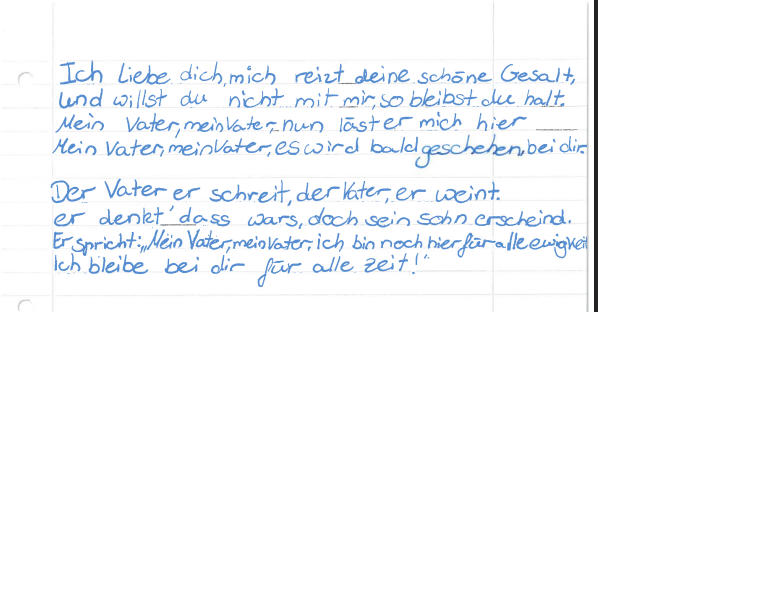 Ich Liebe dich, mich reizt deine schöne Gesalt,
und willst du nicht mit mir, so bleibst du halt.
Mein Vater, mein Vater, nun läst er mich hier
Mein Vater, mein Vater, es wird bald geschehen, bei dir.
Der Vater er schreit, der Vater, er weint.
er denkt' dass wars, doch sein sohn erscheind.
Er spricht: „Mein Vater, mein Vater, ich bin noch hier für alle ewigkeit
Ich bleibe bei dir für alle zeit!“